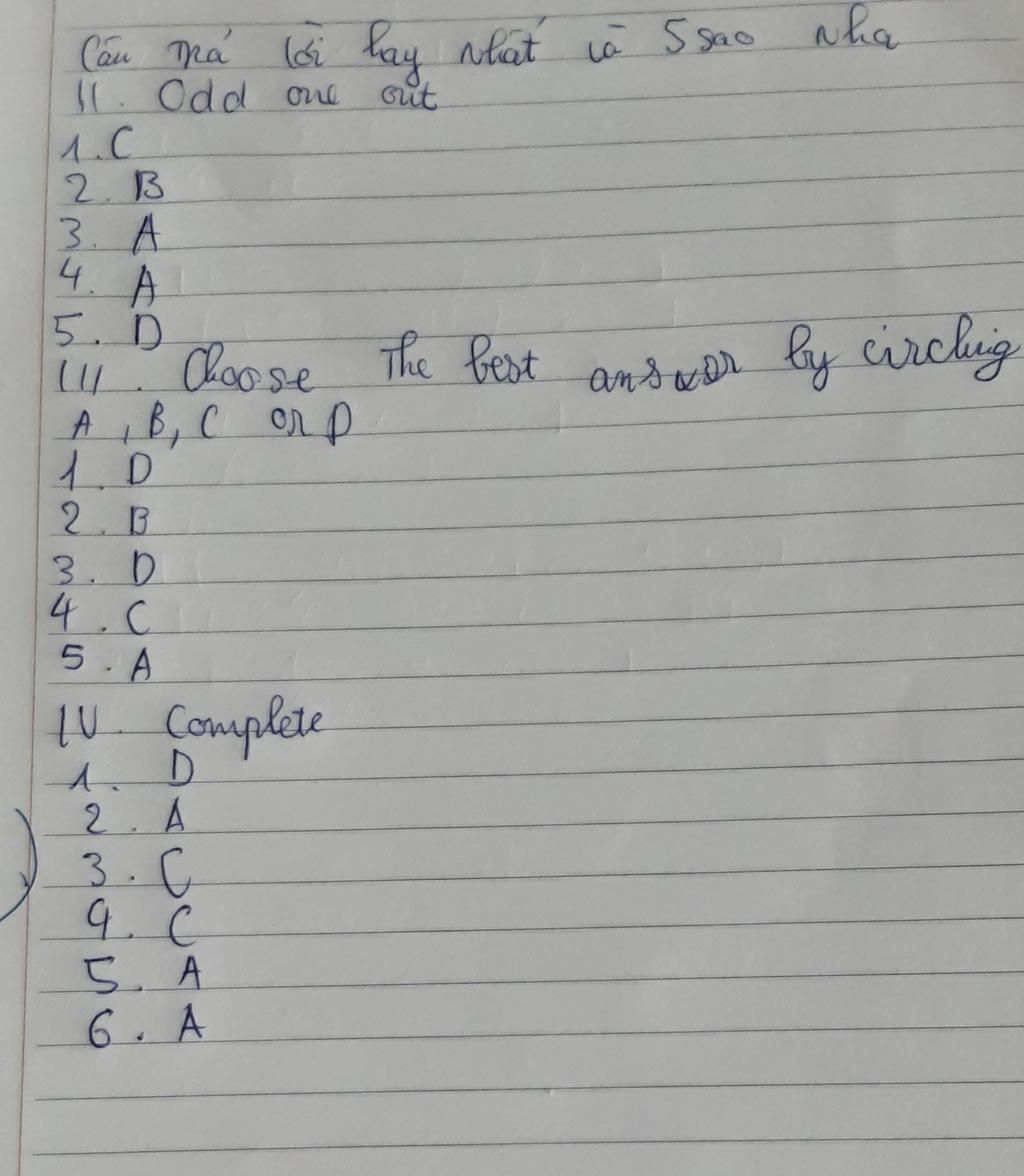 Câu trả lời hay nhất và 5 sao nha
II. Odd one out
1. C
2. B
3. A
4. A
5. D
III. Choose the best answer by circling
A, B, C or D
1. D
2. B
3. D
4. C
5. A
IV. Complete
1. D
2. A
3. C
4. C
5. A
6. A